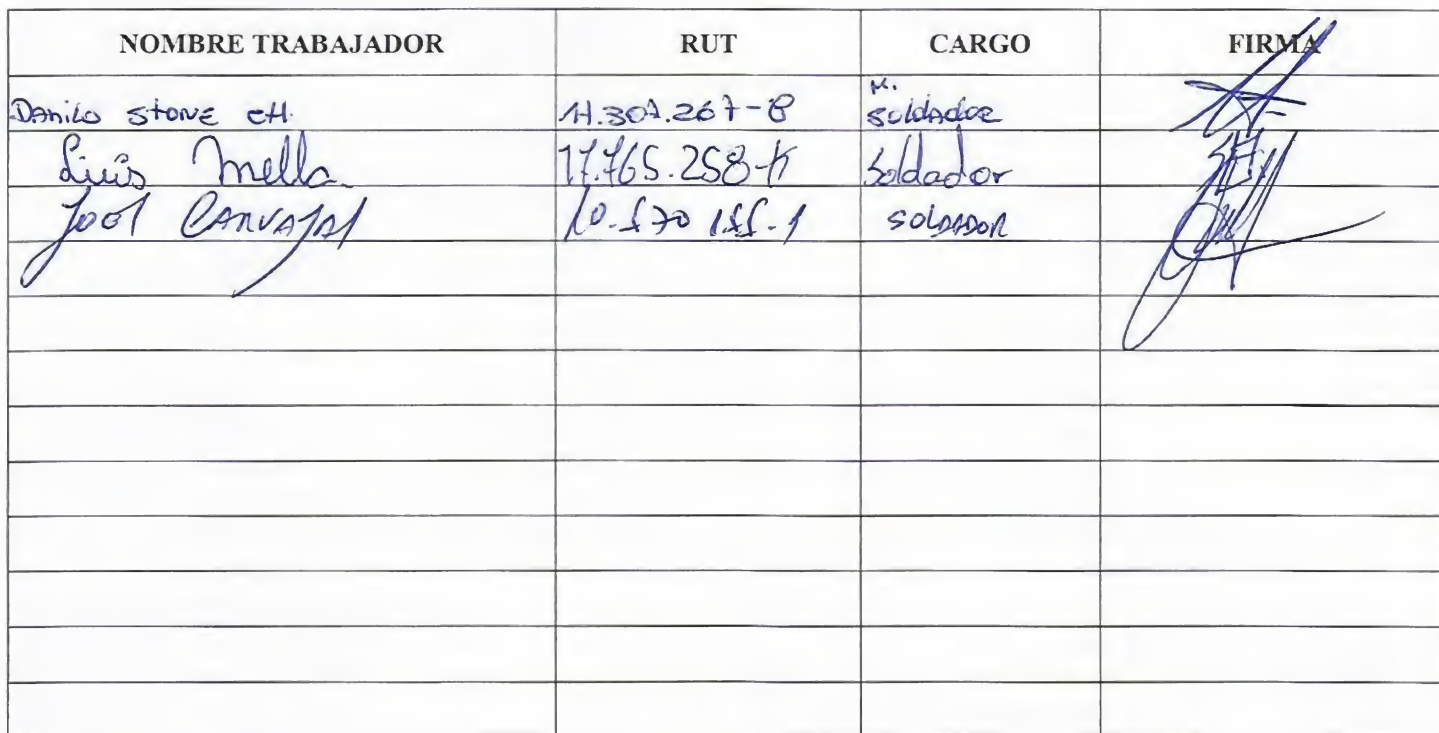 NOMBRE TRABAJADOR RUT CARGO FIRMA
Danilo STONE CH. 11.307.267-8 M. soldador
Luis Mella. 17.765.258-K Soldador
Joel CARVAJAL SOLDADOR